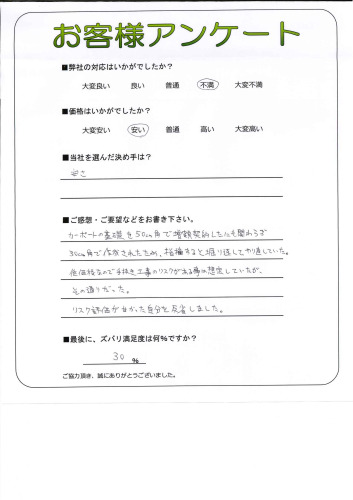 お客様アンケート
■弊社の対応はいかがでしたか？
大変良い 良い 普通 不満 大変不満
■価格はいかがでしたか？
大変安い 安い 普通 高い 大変高い
■当社を選んだ決め手は？
安さ
■ご感想・ご要望などをお書き下さい。
カーポートの基礎を50cm角で増額契約したにも関わらず
30cm角で作成されたため、指摘すると掘り返してやり直していた。
低価格なので手抜き工事のリスクがある事の想定していたが、
その通りだった。
リスク評価が甘かった自分を反省しました。
■最後に、ズバリ満足度は何%ですか？
30 %
ご協力頂き、誠にありがとうございました。